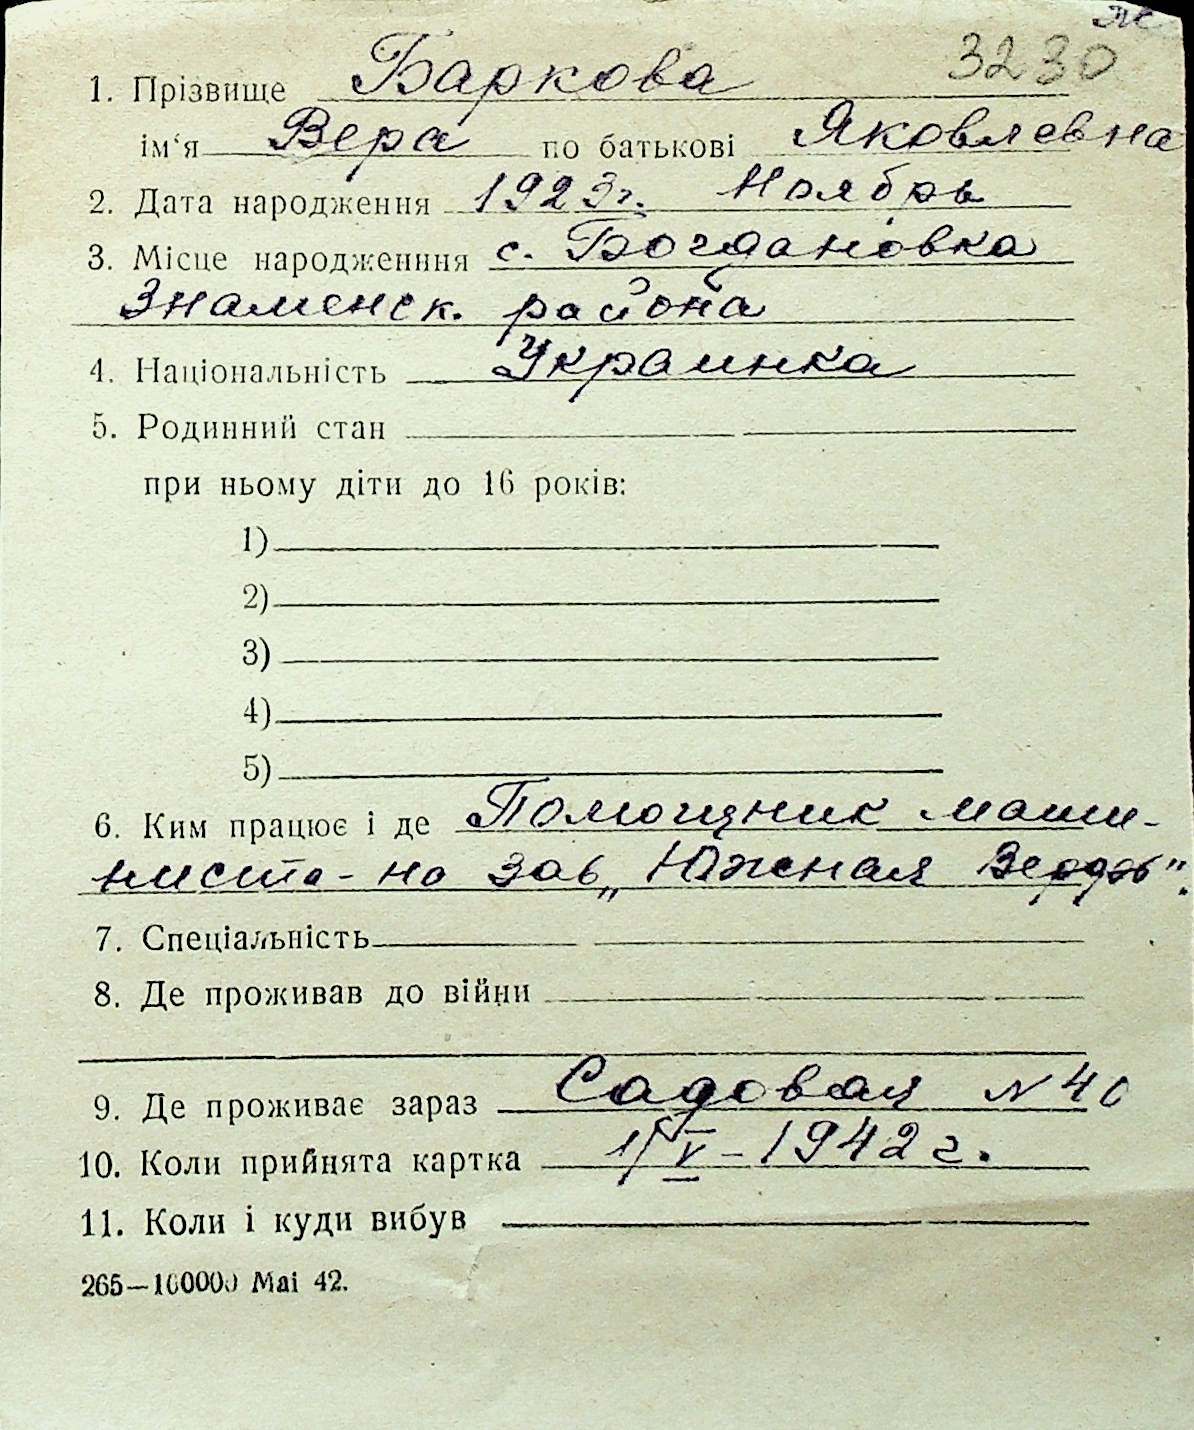 3230
1. Прізвище Баркова
ім‘я Вера по батькові Яковлевна
2. Дата народження 1923г. Ноябрь
3. Місце народженння с. Богдановка
Знаменск. района
4. Національність Украинка
5. Родинний стан
при ньому діти до 16 років:
1)
2)
3)
4)
5)
6. Ким працює і де Помощник маши-
ниста - на зав „Южная
7. Спеціальність
8. Де проживав до війни
9. Де проживає зараз Садовая N 40
10. Коли прийнята картка 1/V - 1942 г.
11. Коли і куди вибув
265—100000 Маі 42.